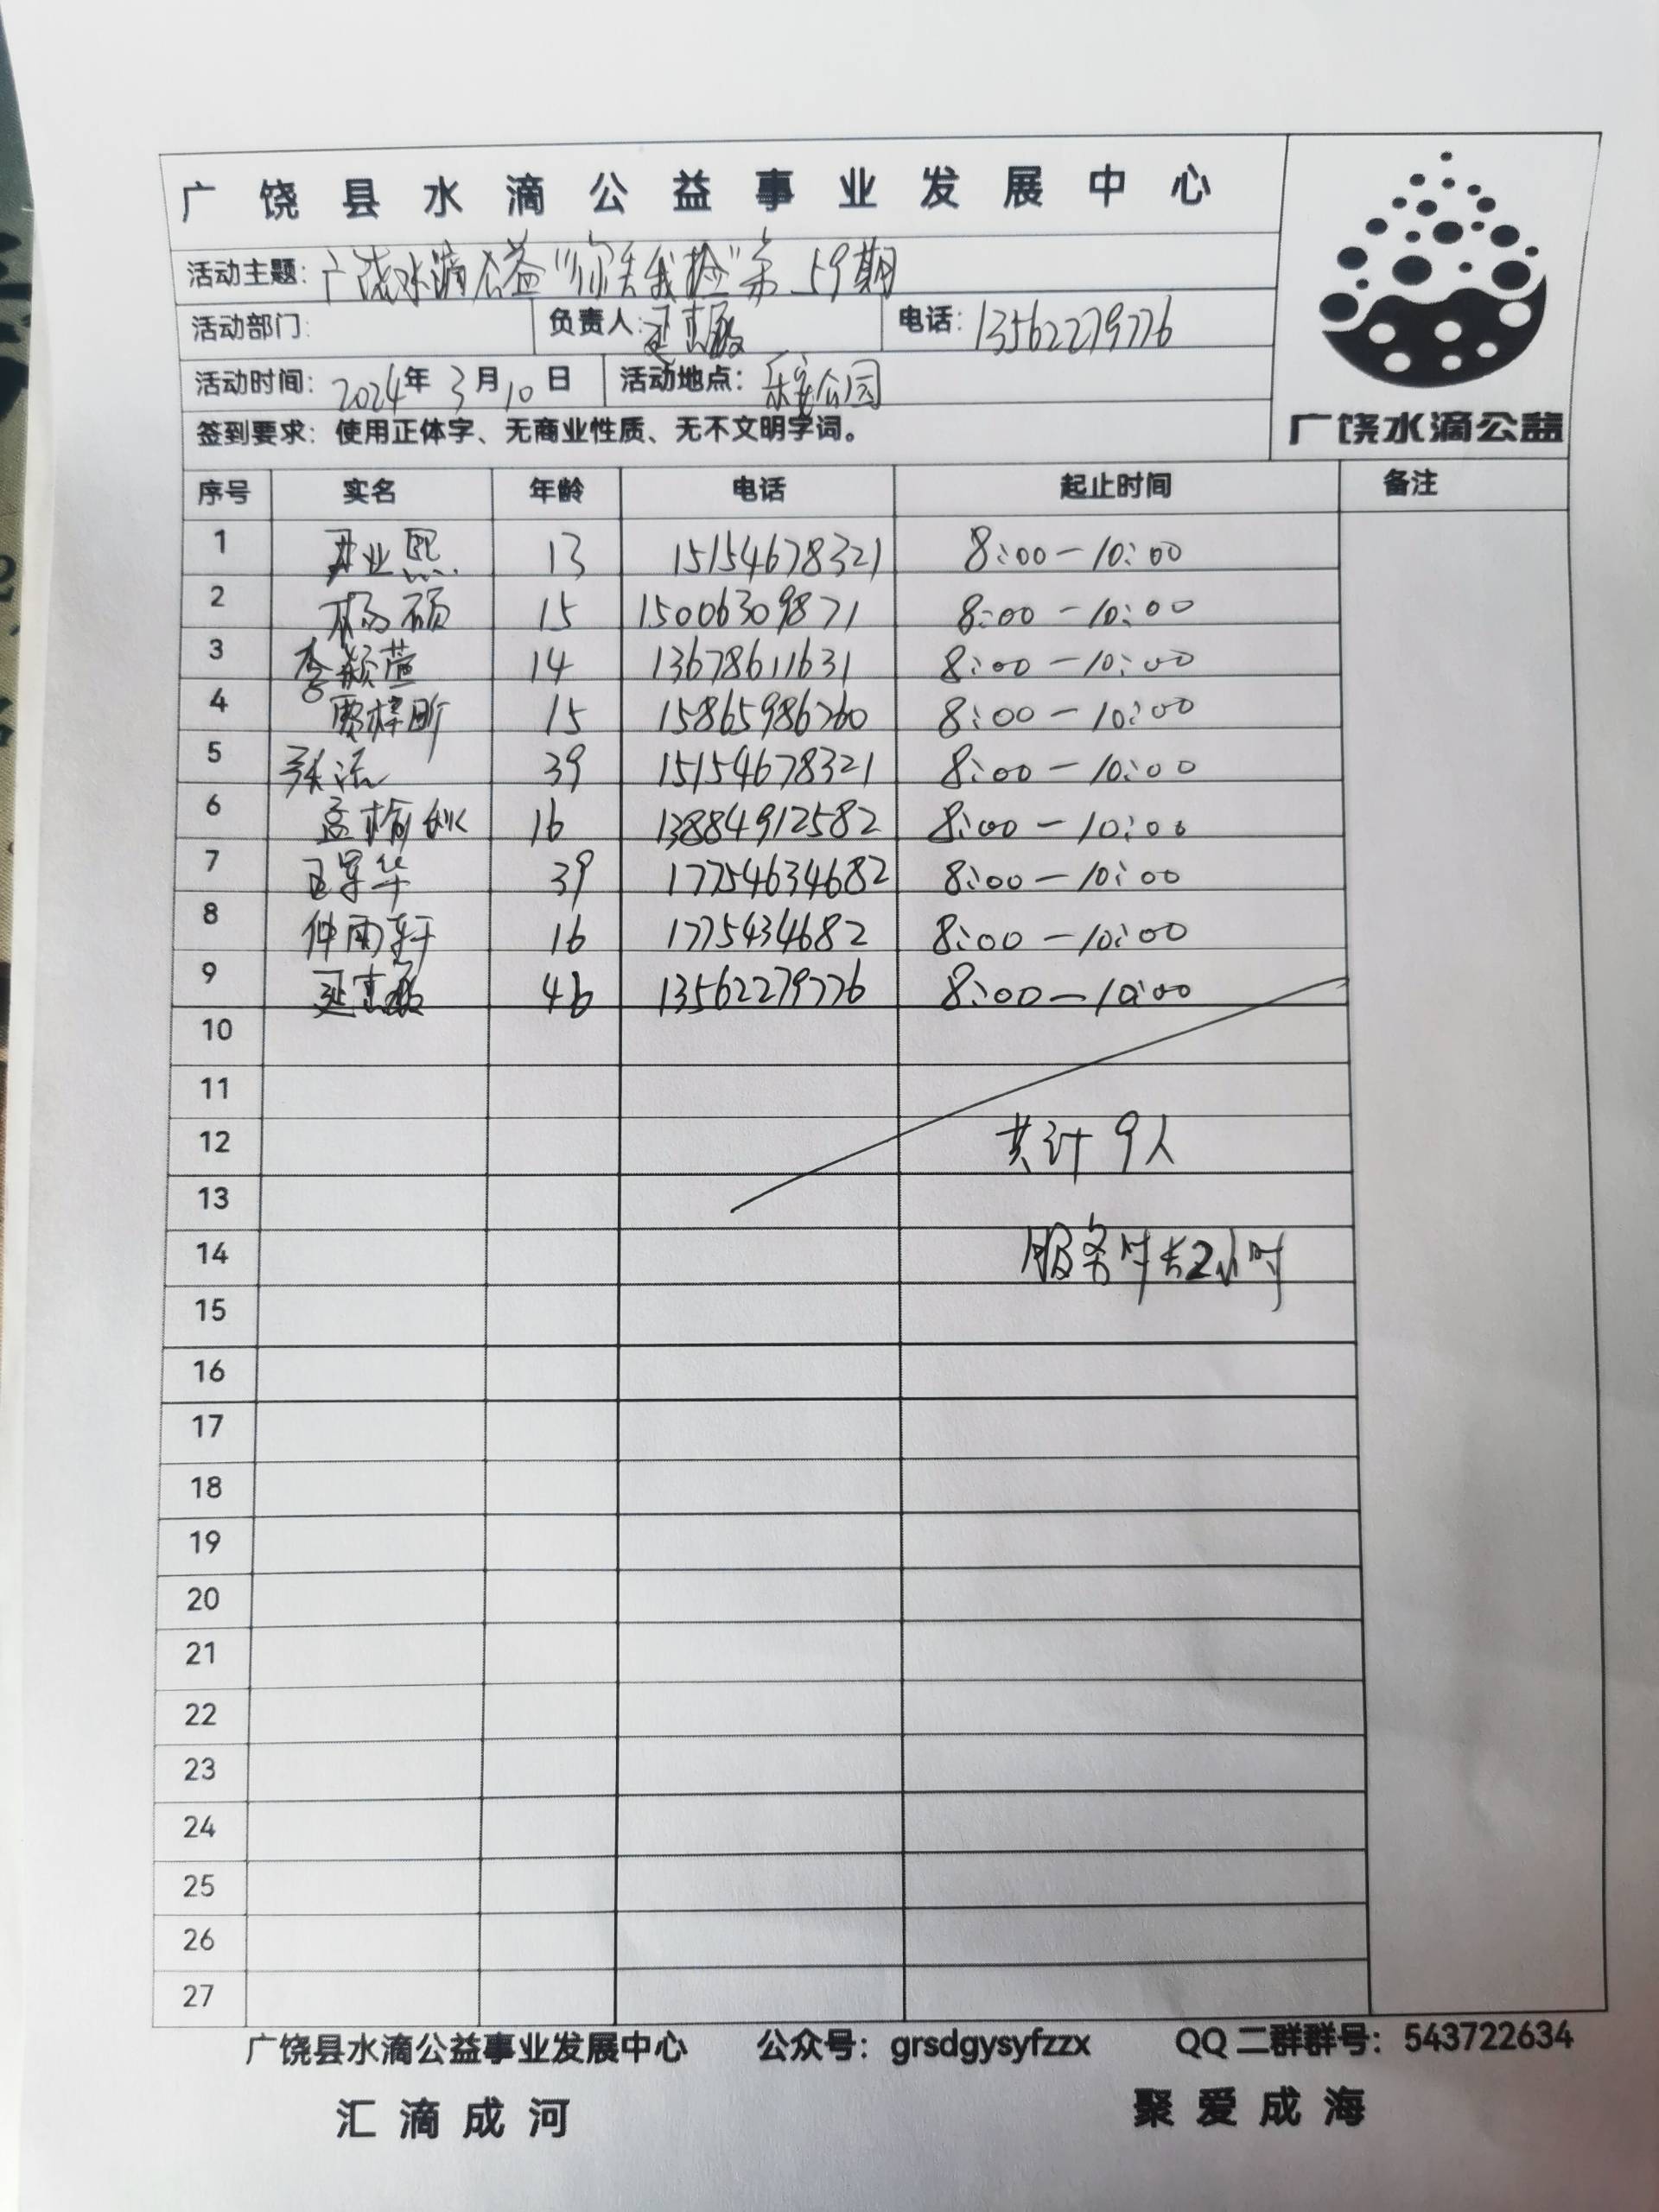 广饶县水滴公益事业发展中心
广饶水滴公益
活动主题: 广饶水滴公益"你丢我捡"第59期
活动部门: 负责人: 电话: 13562279776
活动时间: 2024年3月10日 活动地点: 乐安公园
签到要求: 使用正体字、无商业性质、无不文明字词。
序号 实名 年龄 电话 起止时间 备注
1 业熙 13 15154678321 8:00-10:00
2 杨硕 15 15006309871 8:00-10:00
3 李颖萱 14 13678611631 8:00-10:00
4 贾梓昕 15 15865986760 8:00-10:00
5 张 39 15154678321 8:00-10:00
6 孟榆 16 13884912582 8:00-10:00
7 39 17754634682 8:00-10:00
8 仲雨轩 16 1775434682 8:00-10:00
9 46 13562279776 8:00-10:00
10
11
12 共计9人
13
14 服务时长2小时
15
16
17
18
19
20
21
22
23
24
25
26
27
广饶县水滴公益事业发展中心 公众号: grsdgysyfzzx QQ二群群号: 543722634
汇滴成河 聚爱成海